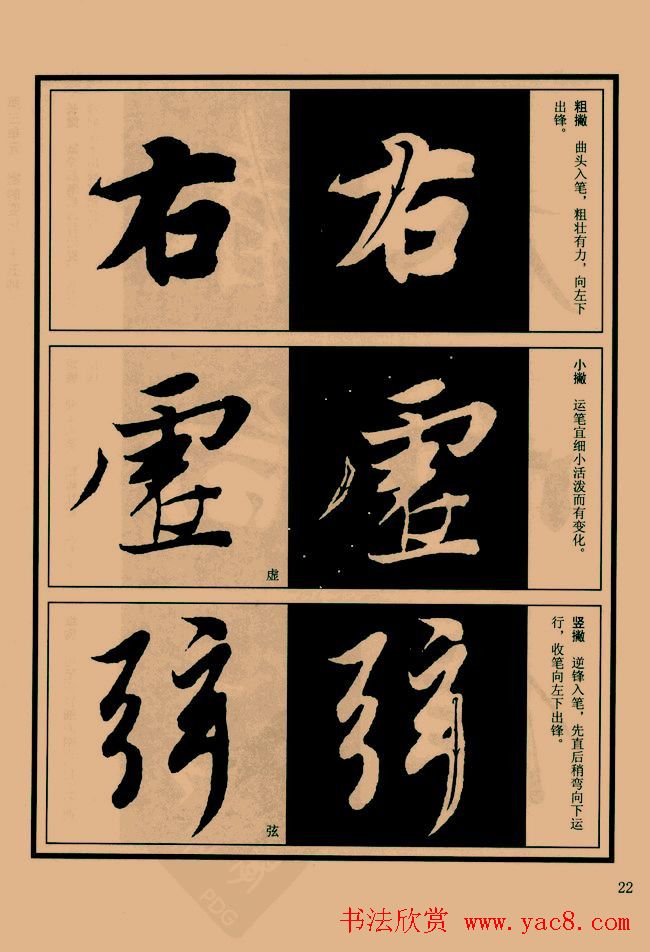 右
右
粗撇　曲头入笔，粗壮有力，向左下
出锋。
虚
虚
虚
小撇　运笔宜细小活泼而有变化。
弦
弦
弦
竖撇　逆锋入笔，先直后稍弯向下运
行，收笔向左下出锋。
22
书法欣赏 www.yac8.com
PDG